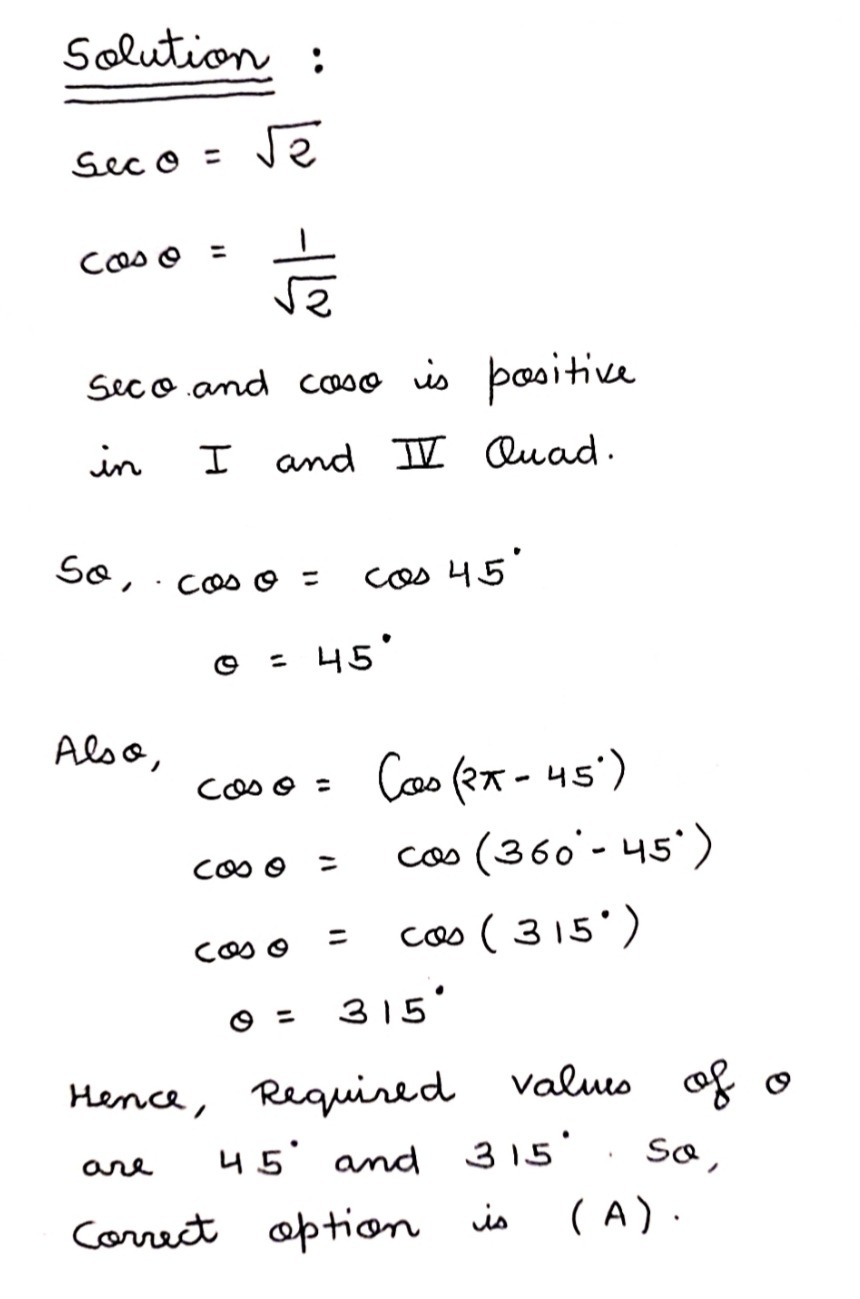 Solution :
sec θ = √2
cos θ = 1/√2
sec θ and cos θ is positive
in I and IV Quad.
So, cos θ = cos 45°
θ = 45°
Also,
cos θ = Cos (2π - 45°)
cos θ = cos (360° - 45°)
cos θ = cos ( 315° )
θ = 315°
Hence, Required values of θ
are 45° and 315°. So,
Correct option is (A).